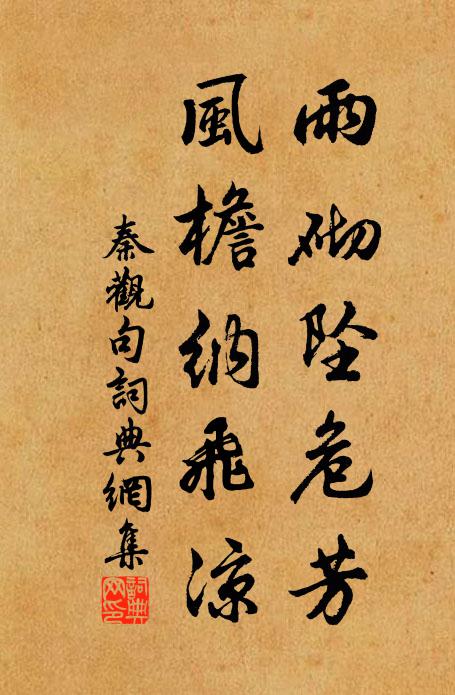 雨砌坠危芳
風檐納飛涼
秦觀句詞典網集
詞典
网印